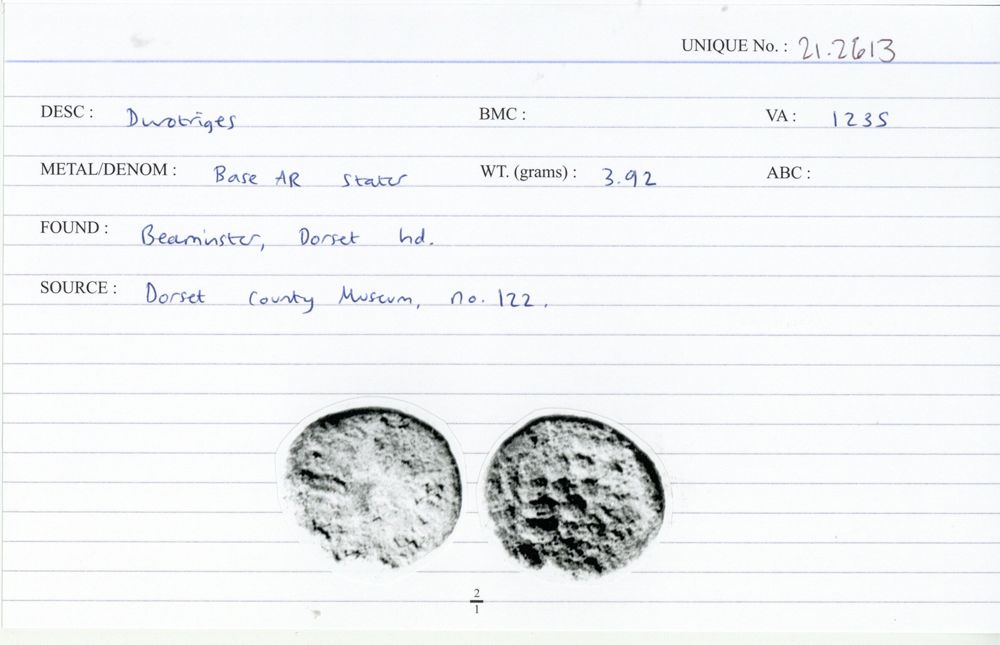 UNIQUE No. : 21.2613
DESC : Durotriges BMC : VA : 1235
METAL/DENOM : Base AR stater WT. (grams) : 3.92 ABC :
FOUND : Beaminster, Dorset hd.
SOURCE : Dorset County Museum, no. 122.
2
1